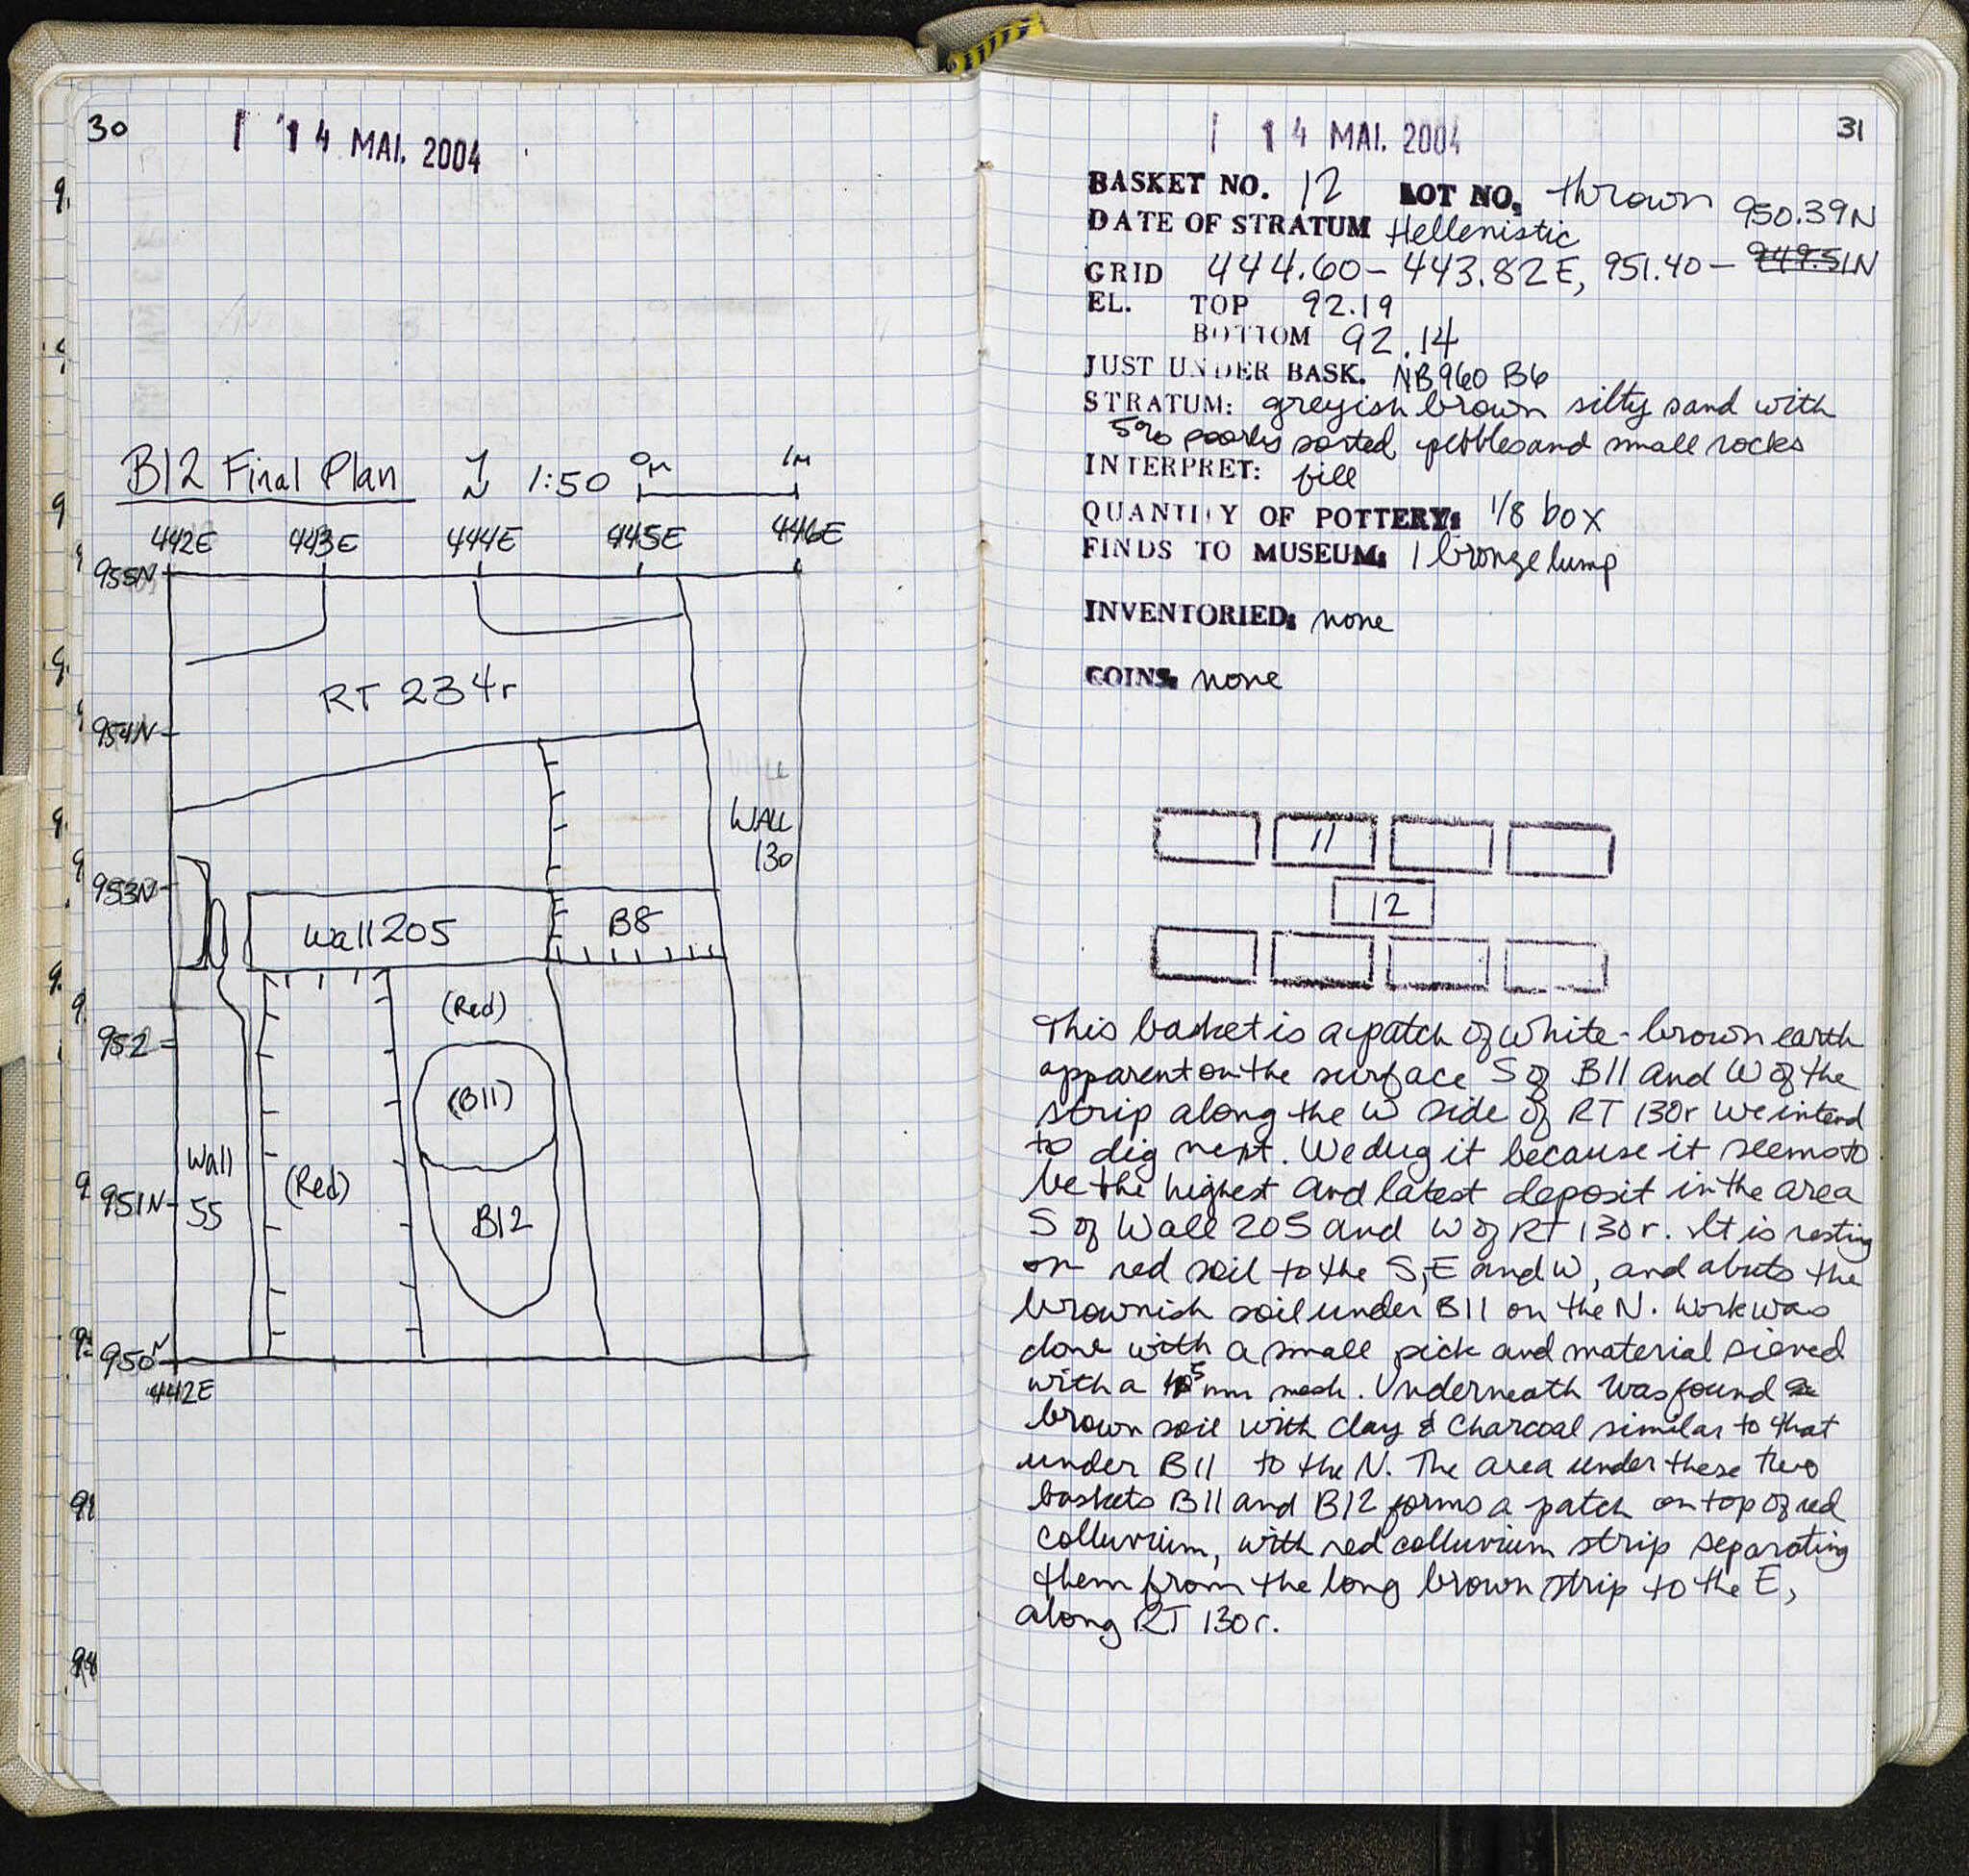 30
1 14 MAI. 2004
B12 Final Plan N 1:50 0M 1M
442E 443E 444E 445E 446E
955N
RT 234r
954N
WALL
130
953N
Wall 205 B8
(Red)
952
(B11)
Wall
55
(Red)
951N
B12
950N
442E
1 14 MAI. 2004
31
BASKET NO. 12 LOT NO. thrown 950.39N
DATE OF STRATUM Hellenistic
GRID 444.60 - 443.82E, 951.40 - 949.51N
EL. TOP 92.19
BOTTOM 92.14
JUST UNDER BASK. NB960 B6
STRATUM: greyish brown silty sand with
5% poorly sorted pebbles and small rocks
INTERPRET: fill
QUANTITY OF POTTERY: 1/8 box
FINDS TO MUSEUM: 1 bronze lump
INVENTORIED: none
COINS: none
11
12
This basket is a patch of white-brown earth
apparent on the surface S of B11 and W of the
strip along the W side of RT 130r we intend
to dig next. We dug it because it seems to
be the highest and latest deposit in the area
S of Wall 205 and W of RT 130r. It is resting
on red soil to the S, E and W, and abuts the
brownish soil under B11 on the N. Work was
done with a small pick and material sieved
with a 5 mm mesh. Underneath was found
brown soil with clay & charcoal similar to that
under B11 to the N. The area under these two
baskets B11 and B12 forms a patch on top of red
colluvium, with red colluvium strip separating
them from the long brown strip to the E,
along RT 130r.